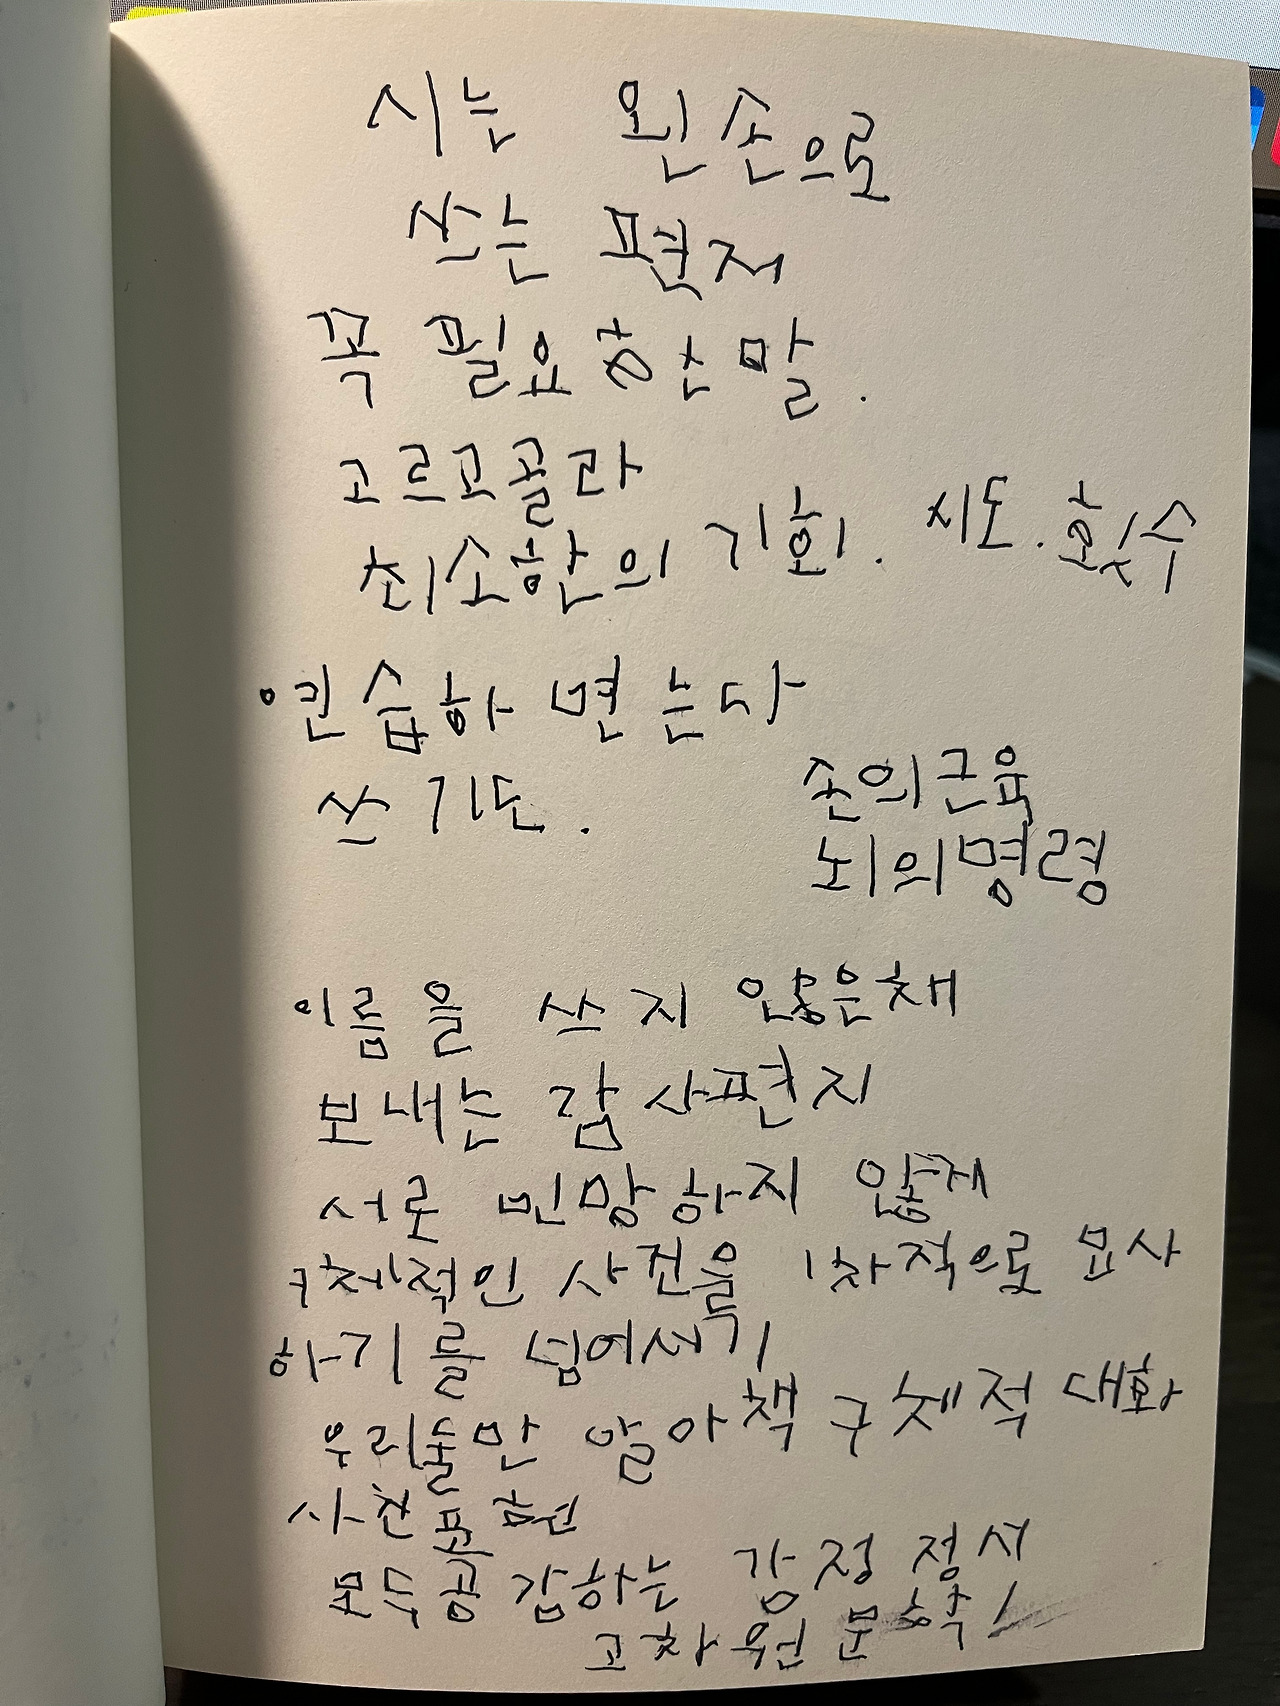 시는 왼손으로
쓰는 편지
꼭 필요한 말.
고르고 골라
최소한의 기회. 시도. 횟수
연습하면 는다
쓰기도.
손의 근육
뇌의 명령
이름을 쓰지 않은채
보내는 감사편지
서로 민망하지 않게
구체적인 사건을 1차적으로 묘사
하기를 넘어서기
우리둘만 알아 책 구체적 대화
사진 표현
모두 공감하는 감정 정서
고차원 문학